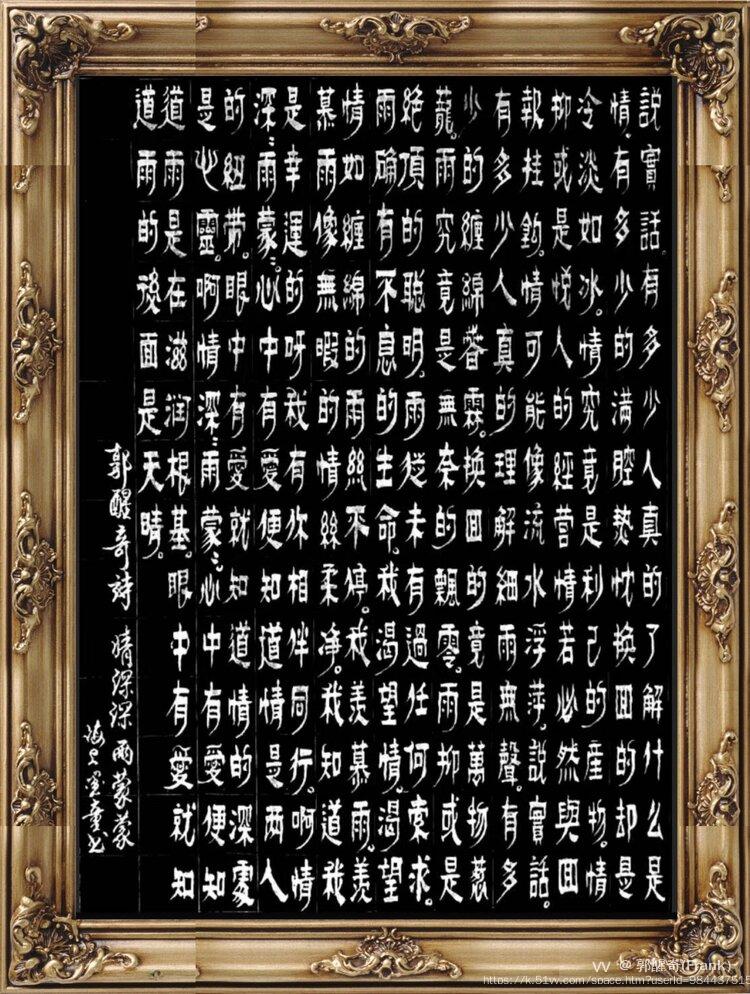 說實話有多少人真的了解什么是
情，有多少的满腔热忱换回的却是
冷淡如冰。情究竟是利己的産物。情
抑或是悦人的經营情若必然與回
報挂鈎。情可能像流水浮萍。說實話。
有多少人真的理解細雨無聲。有多
少的缠綿霖。换回的竟是萬物蔥
蘢。雨究竟是無奈的飄零。雨抑或是
绝頂的聪明。雨從未有過任何索求。
雨确有不息的生命。我渴望情。渴望
情如缠綿的雨丝不停。我羡慕雨。羡
慕雨像無暇的情絲柔净。我知道我
是幸運的呀我有你相伴同行。啊情
深〻雨蒙〻。心中有愛便知道情是两人
的纽带。眼中有愛就知道情的深處
是心靈。啊情深〻雨蒙〻心中有愛便知
道雨是在滋润根基。眼中有愛就知
道雨的後面是天晴。
郭醒奇詩 情深深雨蒙蒙
VV @ 郭醒奇(Frank)
https://k.51vv.com/space.htm?userId=984437515